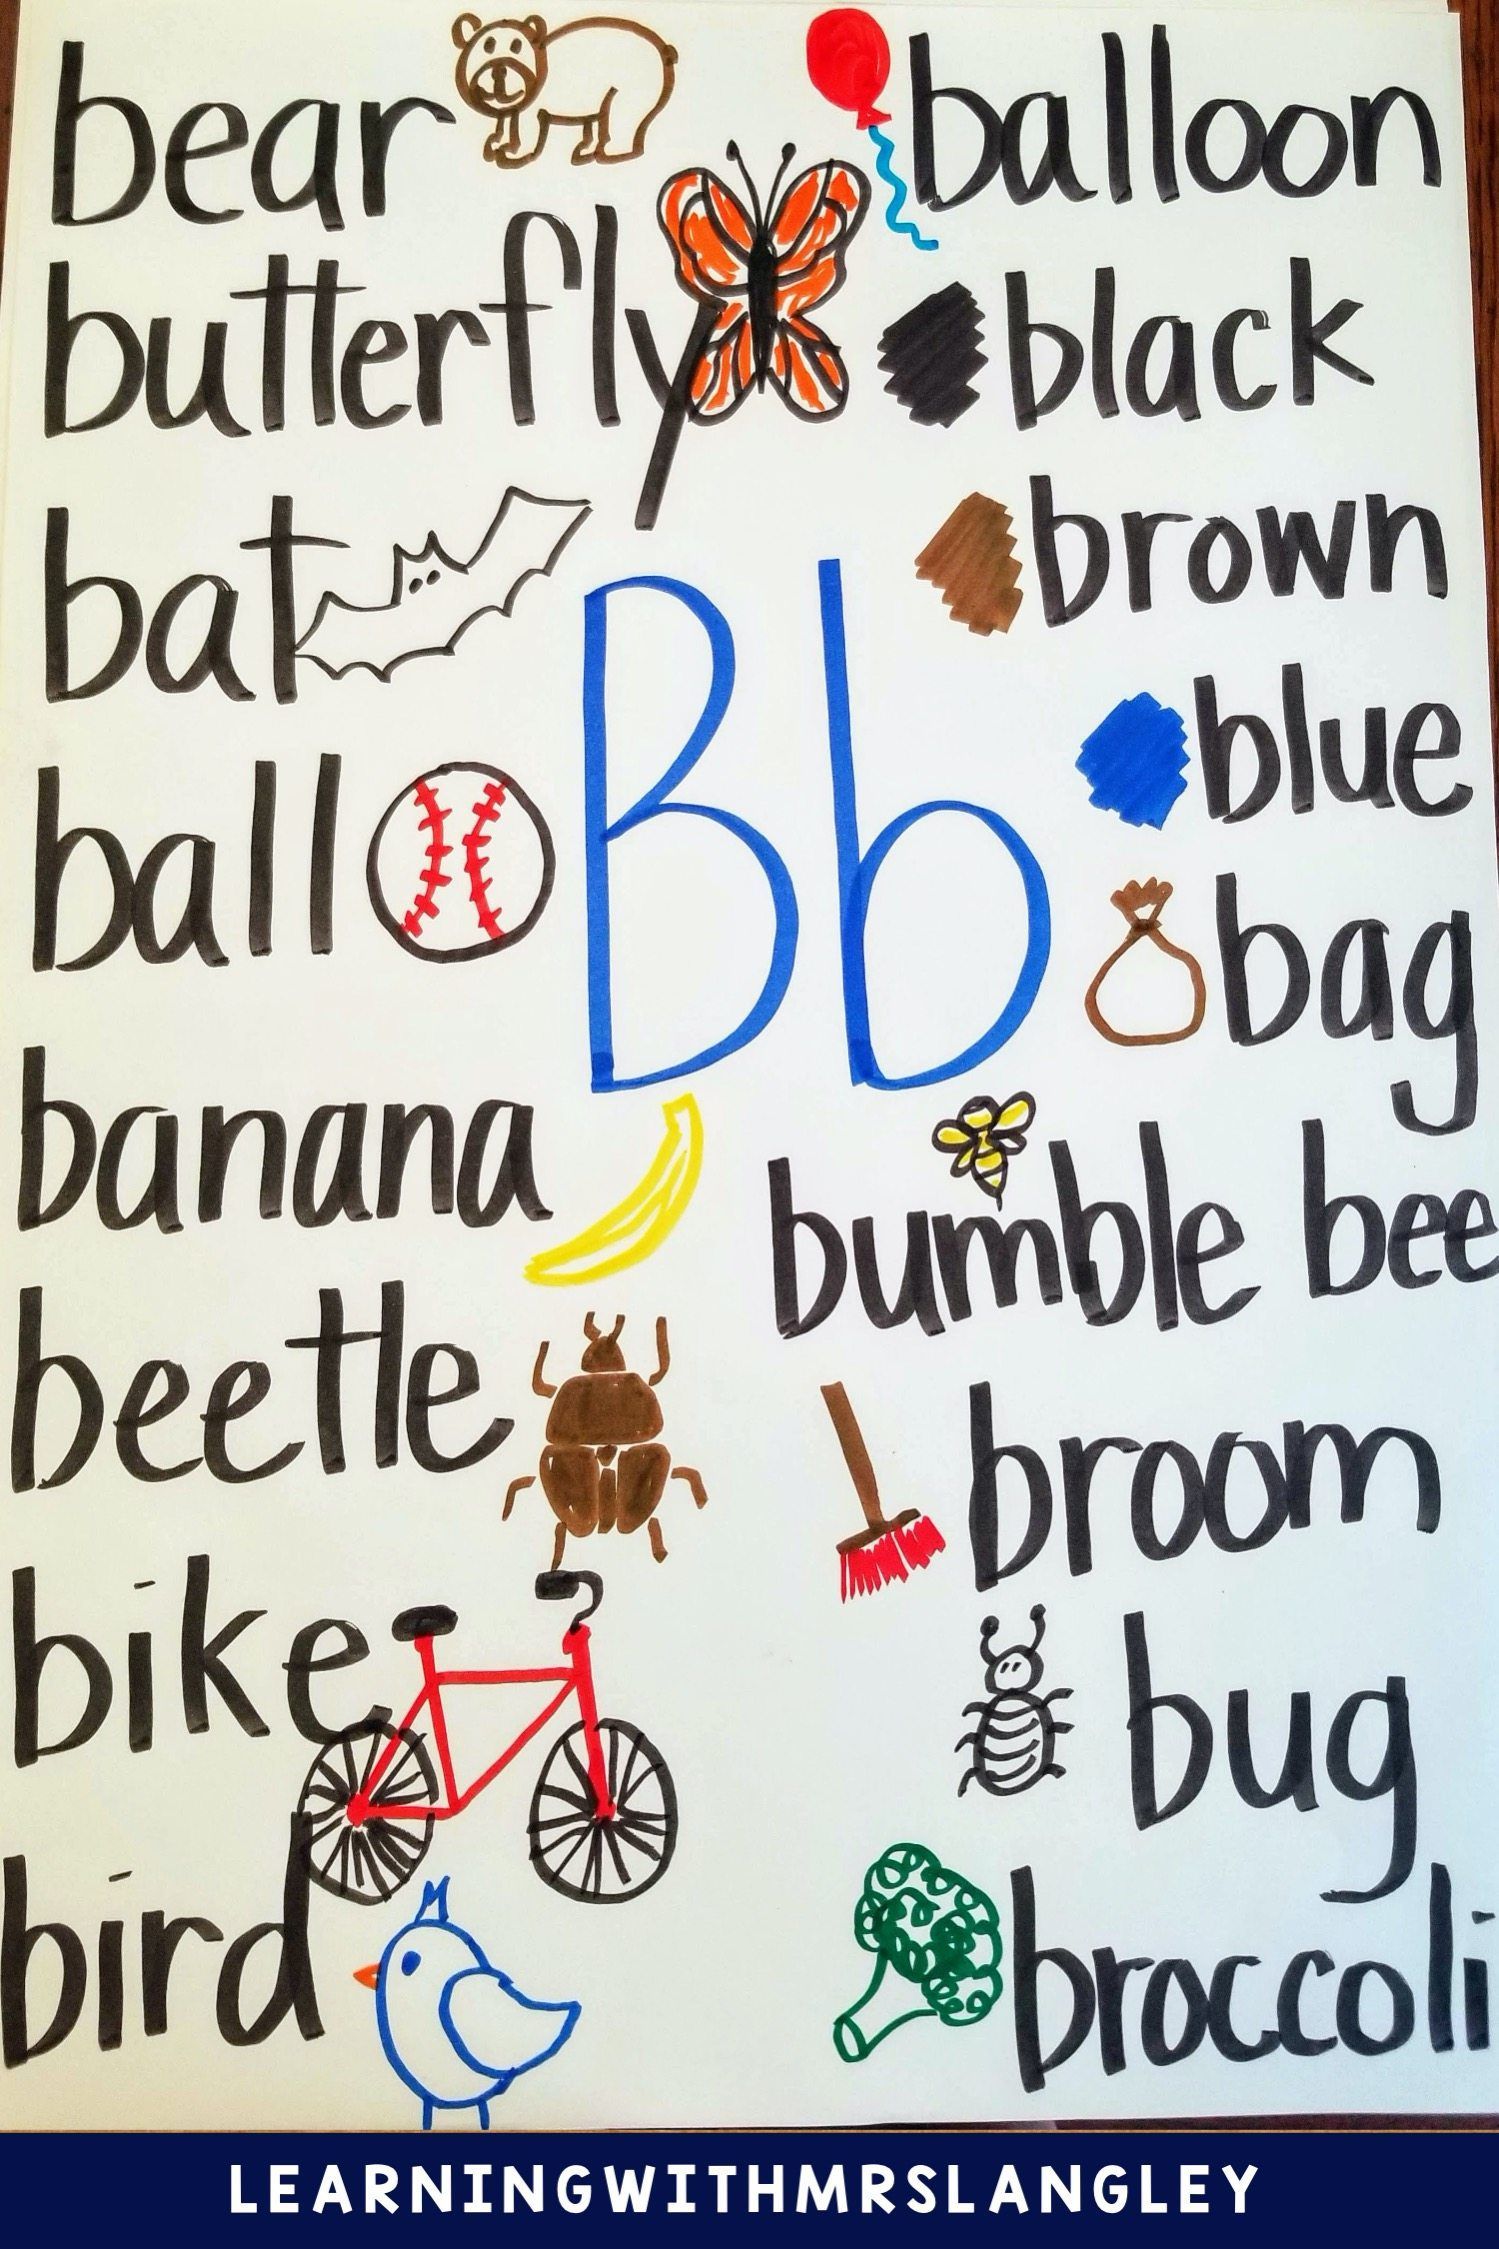 bear
butterfly
bat
ball
banana
beetle
bike
bird
Bb
balloon
black
brown
blue
bag
bumble bee
broom
bug
broccoli
LEARNINGWITHMRSLANGLEY